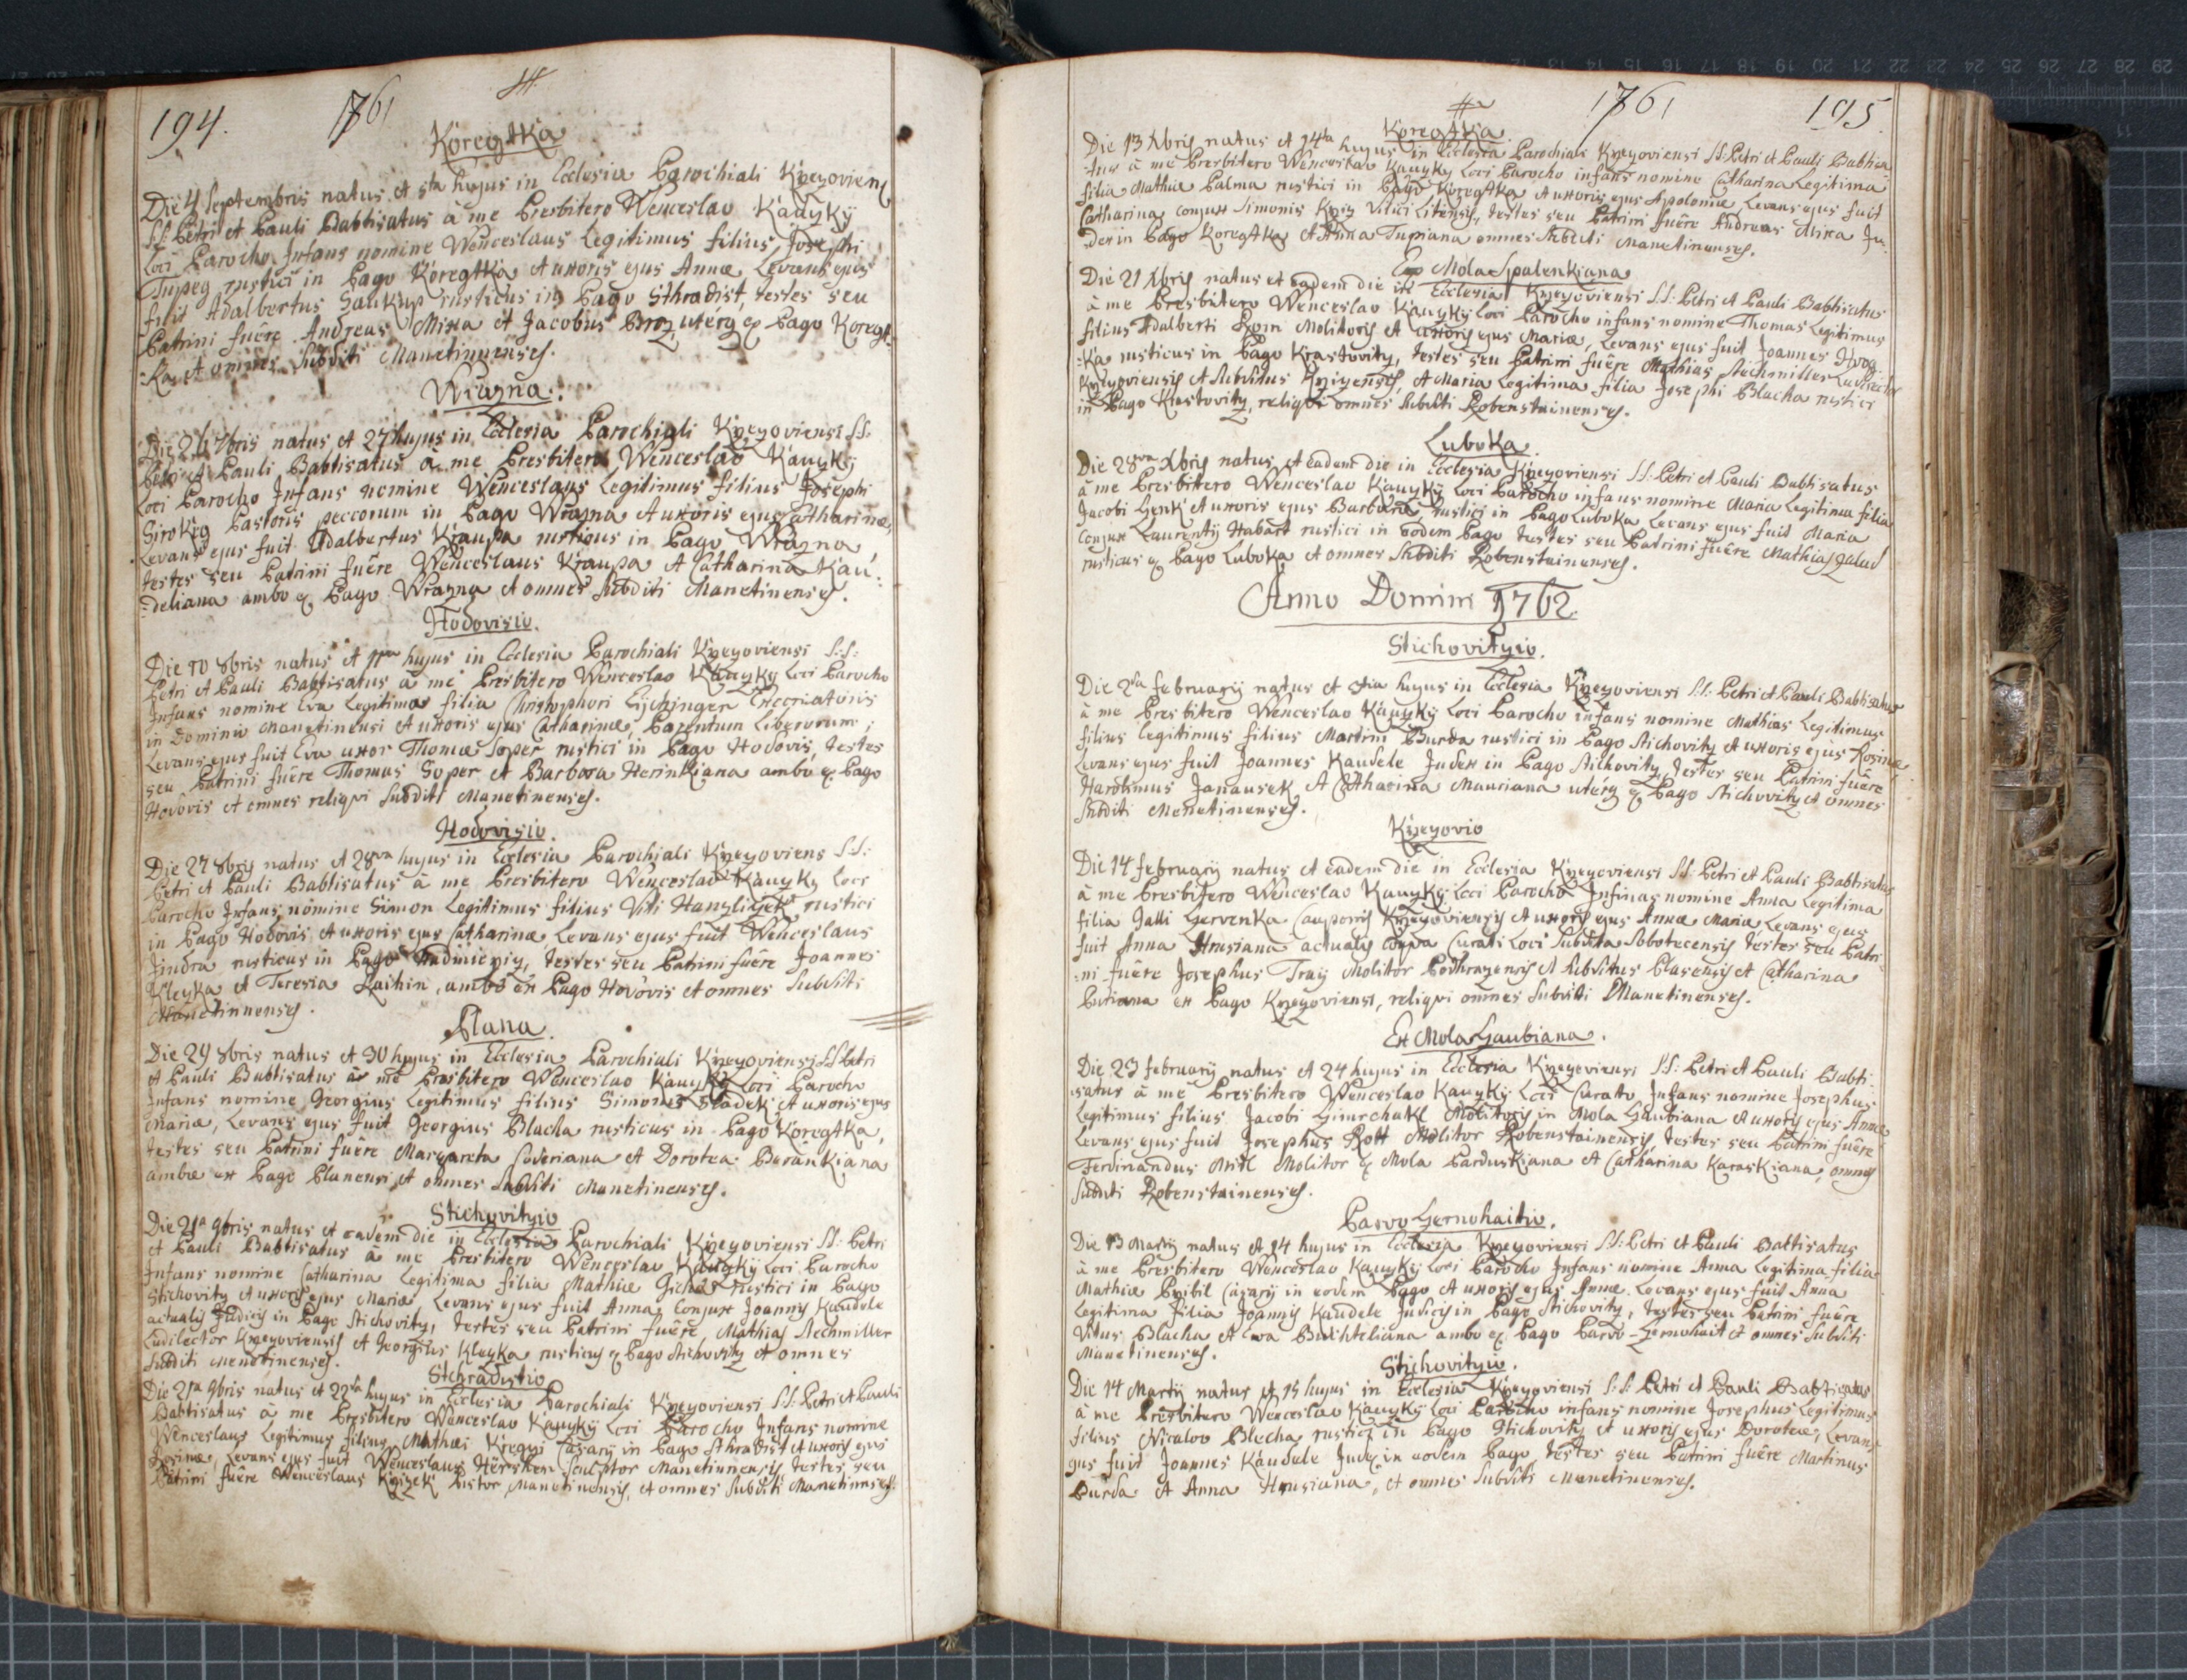 194.
1761
Koregtka
Die 4 Septembris natus et 5ta hujus in Ecclesia Parochiali Kneyoviens
SS: Petri et Pauli Babtisatus à me Presbitero Wenceslao Kauyky
Loci Parocho Infans nomine Wenceslaus Legitimus filius Josephi
Tupeg rustici in Pago Koregtka et uxoris ejus Annæ, Levans ejus
fuit Adalbertus Saukup rusticus in Pago Sthradist, testes seu
Patrini fuêre Andreas Mixa et Jacobus Broz utérq ex Pago Koregt-
-ka et omnes Subditi Manetinnenses.
Wrazna.
Die 26 7bris natus et 27 hujus in Ecclesia Parochiali Kneyoviensi SS:
Petri et Pauli Babtisatus à me Presbitero Wenceslao Kauyky
Loci Parocho Infans nomine Wenceslaus Legitimus filius Josephi
Sirokeg Pastoris peccorum in Pago Wrazna et uxoris ejus Catharinæ,
Levans ejus fuit Adalbertus Kraupa rusticus in Pago Wrazna,
testes seu Patrini fuêre Wenceslaus Kraupa et Catharina Kau-
-deliana ambo ex Pago Wrazna et omnes Subditi Manetinenses.
Hodovisio.
Die 10 8bris natus et 11ma hujus in Ecclesia Parochiali Kneyoviensi S:S:
Petri et Pauli Babtisatus à me Presbitero Wenceslao Kauyky Loci Parocho
Infans nomine Eva Legitima filia Christophori Eychinger
in Dominio Manetinensi et uxoris ejus Catharinæ, Parentum Liberorum;
Levans ejus fuit Eva uxor Thomæ Soper rustici in Pago Hodovis, testes
seu Patrini fuêre Thomas Soper et Barbora Herinkiana ambo ex Pago
Hodovis et omnes reliqvi Subditi Manetinenses.
Hodovisio.
Die 27 8bris natus et 28va hujus in Ecclesia Parochiali Kneyoviens S:S:
Petri et Pauli Babtisatus à me Presbitero Wenceslao Kauyky Loci
Parocho Infans nomine Simon Legitimus filius Viti Hanzligek rustici
in Pago Hodovis et uxoris ejus Catharinæ, Levans ejus fuit Wenceslaus
Jindra rusticus in Pago, testes seu Patrini fuêre Joannes
Kleyka et Teresia Raihin, ambo ex Pago Hodovis et omnes Subditi
Manetinnenses.
Plana.
Die 29 8bris natus et 30 hujus in Ecclesia Parochiali Kneyoviensi SS Petri
et Pauli Babtisatus à me Presbitero Wenceslao Kauyky Loci Parocho
Infans nomine Georgius Legitimus filius Simonis Sladek et uxoris ejus
Maria, Levans ejus fuit Georgius Blacha rusticus in Pago Koregtka,
testes seu Patrini fuêre Margareta Soveriana et Dorotea Berankiana
ambæ ex Pago Planensi et omnes Subditi Manetinenses.
Stichovityio
Die 21a 9bris natus et eadem die in Ecclesia Parochiali Kneyoviensi SS: Petri
et Pauli Babtisatus à me Presbitero Wenceslao Kauyky Loci Parocho
Infans nomine Catharina Legitima filia Mathiæ Gicha rustici in Pago
Stichovity et uxoris ejus Mariæ Levans ejus fuit Anna Conjux Joannis Kaudele
actualis Judicis in Pago Stichovity, testes seu Patrini fuêre, Mathias Stechmiller
Ludilector Kneyoviensis et Georgius Kleyka rusticus ex Pago Stichovity et omnes
Subditi Menetinenses.
Stchradistio
Die 21a 9bris natus et 22da hujus in Ecclesia Parochiali Kneyoviensi S:S: Petri et Pauli
Babtisatus à me Presbitero Wenceslao Kauyky Loci Parocho Infans nomine
Wenceslaus Legitimus filius Mathiæi Kregyi Casarij in Pago Sthradist et uxoris ejus
Rosinæ, Levans ejus fuit Wenceslaus Hërscher Sculptor Manetinnensis testes seu
Patrini fuêre Wenceslaus Knizek Pistor Manetinensis, et omnes Subditi Manetinnses.
1761
195.
Koregtka.
Die 13 Xbris natus et 14ta hujus in Ecclesia Parochiali Kneyoviensi SS: Petri et Pauli Babtisa
-tus à me Presbitero Wenceslao Kauyky Loci Parocho infans nomine Catharina Legitima
filia Mathiæ Palma rustici in Pago Koregtka et uxoris ejus Apoloniæ Levans ejus fuit
Catharina conjux Simonis Kniz Vilici Litensis, testes seu Patrini fuêre Andreas Mixa Ju-
-dex in Pago Koregtka et Anna Tupiana omnes Subditi Manetinenses.
Ex Mola Spalenkiana
Die 21 Xbris natus et eadem die in Ecclesia Kneyoviensi S:S: Petri et Pauli Babtisatus
à me Presbitero Wenceslao Kauyky Loci Parocho infans nomine Thomas Legitimus
filius Adalberti Rom Molitoris et uxoris ejus Mariæ, Levans ejus fuit Joannes Hrog
-ka rusticus in Pago Krastovity, testes seu Patrini fuêre Mathias Stechmiller Ludirector
Kneyoviensis et Subditus Kniyensis, et Maria Legitima filia Josephi Blacha rustici
in Pago Kastovity, reliqvi omnes Subditi Robensteinenses.
Luboka.
Die 28va Xbris natus et eadem die in Ecclesia Kneyoviensi SS: Petri et Pauli Babtisatus
à me Presbitero Wenceslao Kauyky Loci Parocho infans nomine Maria Legitima filia
Jacobi Genk et uxoris ejus Barboræ rustici in Pago Luboka Levans ejus fuit Maria
Conjux Laurentij Habart rustici in eodem Pago testes seu Patrini fuêre Mathias Zalud
rusticus ex Pago Luboka et omnes Subditi Robensteinenses.
Anno Domini 1762.
Stichovityio.
Die 2da februarij natus et 3tia hujus in Ecclesia Kneyoviensi S:S: Petri et Pauli Babtisatus
à me Presbitero Wenceslao Kauyky Loci Parocho infans nomine Mathias Legitimus
filius Legitimus filius Martini Burda rustici in Pago Stichovity et uxoris ejus Rosinæ
Levans ejus fuit Joannes Kaudele Judex in Pago Stichovity, testes seu Patrini fuêre
Harolimus Janausek et Catharina Mauriana utérq ex Pago Stichovity et omnes
Subditi Menetinenses.
Kneyovio
Die 14 februarij natus et eadem die in Ecclesia Kneyoviensi SS: Petri et Pauli Babtisatus
à me Presbitero Wenceslao Kauyky Loci Parocho Infans nomine Anna Legitima
filia Galli Gervenka Cauponis Kneyoviensis et uxoris ejus Annæ Mariæ Levans ejus
fuit Anna Hrusiana actualis Coqva Curati Loci Subdita Sobotecensis testes seu Patri-
-ni fuêre Josephus Traij Molitor Podhrazensis et Subditus Plasensis et Catharina
Butiana ex Pago Kneyoviensi, reliqvi omnes Subditi Manetinenses.
Ex Mola Gaubiana.
Die 23 februarij natus et 24 hujus in Ecclesia Kneyoviensi S:S: Petri et Pauli Babti-
-satus à me Presbitero Wenceslao Kauyky Loci Curato Infans nomine Josephus
Legitimus filius Jacobi Molitoris in Mola Gaubiana et uxoris ejus Annæ
Levans ejus fuit Josephus Rott Molitor Robensteinensis, testes seu Patrini fuêre
Ferdinandus Molitor ex Mola Parduskiana et Catharina Karaskiana, omnes
Subditi Robensteinenses.
Parvo Gernohaitio.
Die 13 Martij natus et 14 hujus in Ecclesia Kneyoviensi S:S: Petri et Pauli Babtisatus
à me Presbitero Wenceslao Kauyky Loci Parocho Infans nomine Anna Legitima filia
Mathiæ Pribil Casarij in eodem Pago et uxoris ejus Annæ. Levans ejus fuit Anna
Legitima filia Joannis Kaudele Judicis in Pago Stichovity, testes seu Patrini fuêre
Vitus Blacha et Eva Buchteliana ambo ex Pago Parvo-Gernohait et omnes Subditi
Manetinenses.
Stichovityio.
Die 14 Martij natus et 15 hujus in Ecclesia Kneyoviensi S:S: Petri et Pauli Babtisatus
à me Presbitero Wenceslao Kauyky Loci Parocho infans nomine Josephus Legitimus
filius Nicalao Blecha rustici in Pago Stichovity et uxoris ejus Doroteæ, Levans
ejus fuit Joannes Kaudele Judex in eodem Pago testes seu Patrini fuêre Martinus
Burda et Anna Hrusiana, et omnes Subditi Menetinenses.